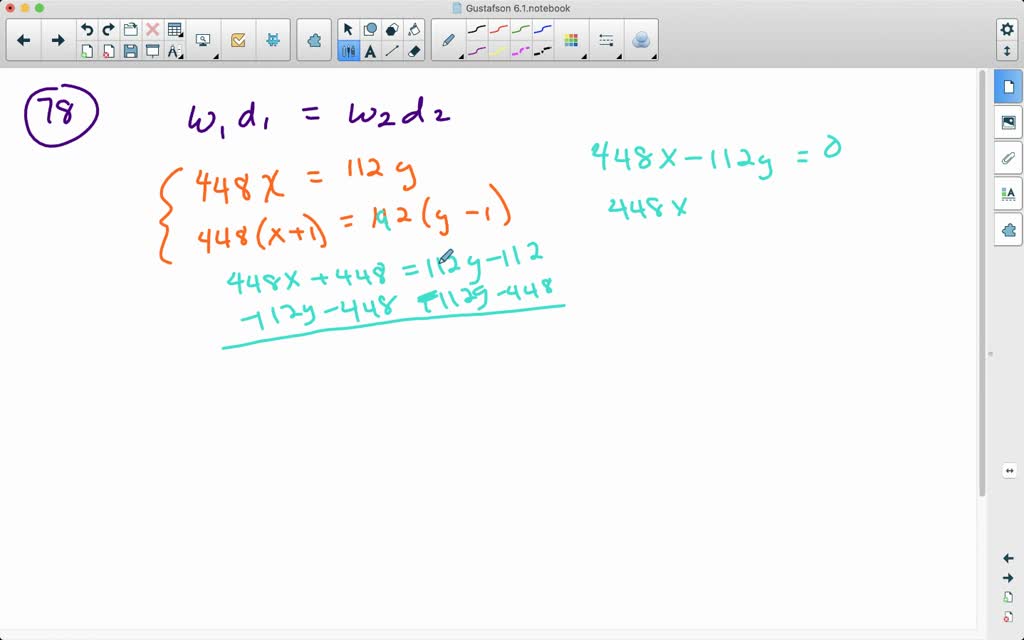 Gustafson 6.1.notebook
78
w₁d₁ = w₂d₂
448x = 112y
448(x+1) = 112(y-1)
448x+448 = 112y-112
-112y-448 -112y-448
448x-112y = 0
448x